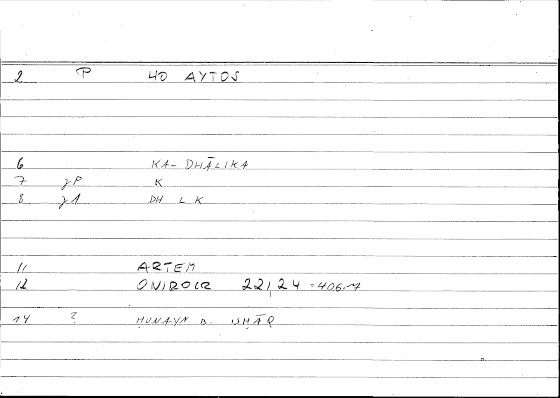 2 P HO AYTOS
6 KA-DHĀLIKA
7 γP K
8 γA DH L K
11 ARTEM
12 ONIROCR 22,24 =406,7
14 ? ḤUNAYN B. ISḤĀQ